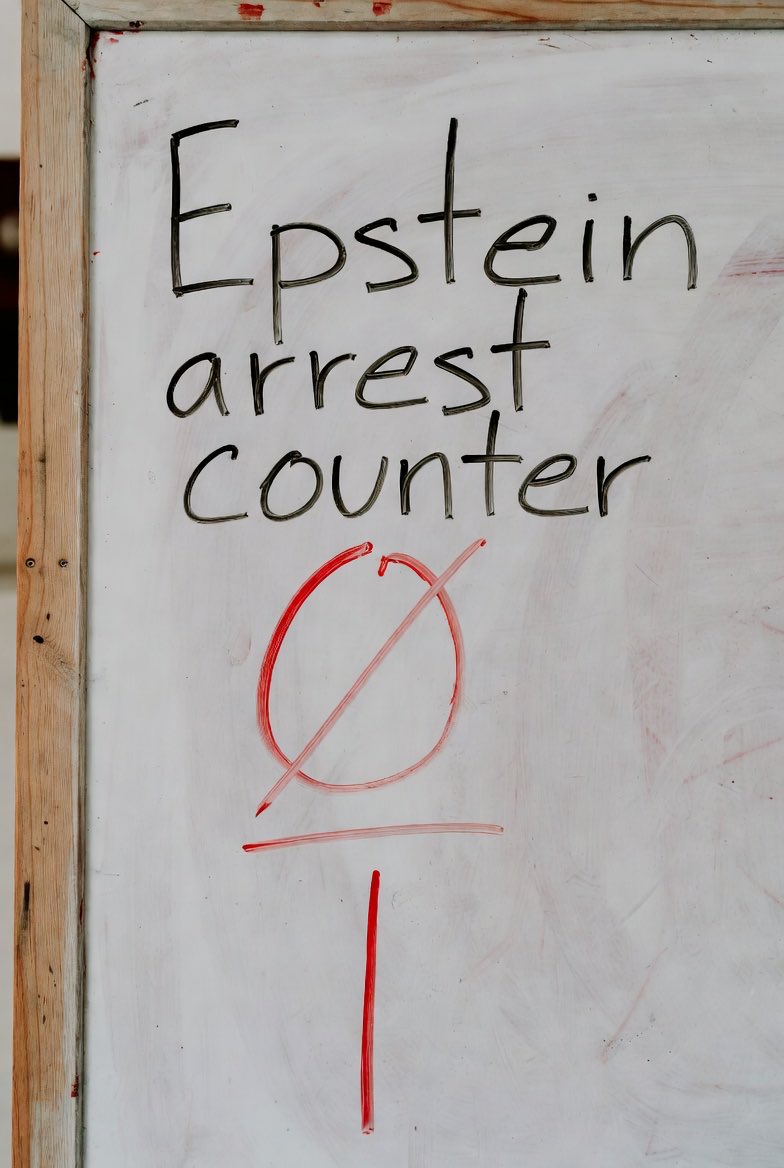 Epstein
arrest
counter
0
1